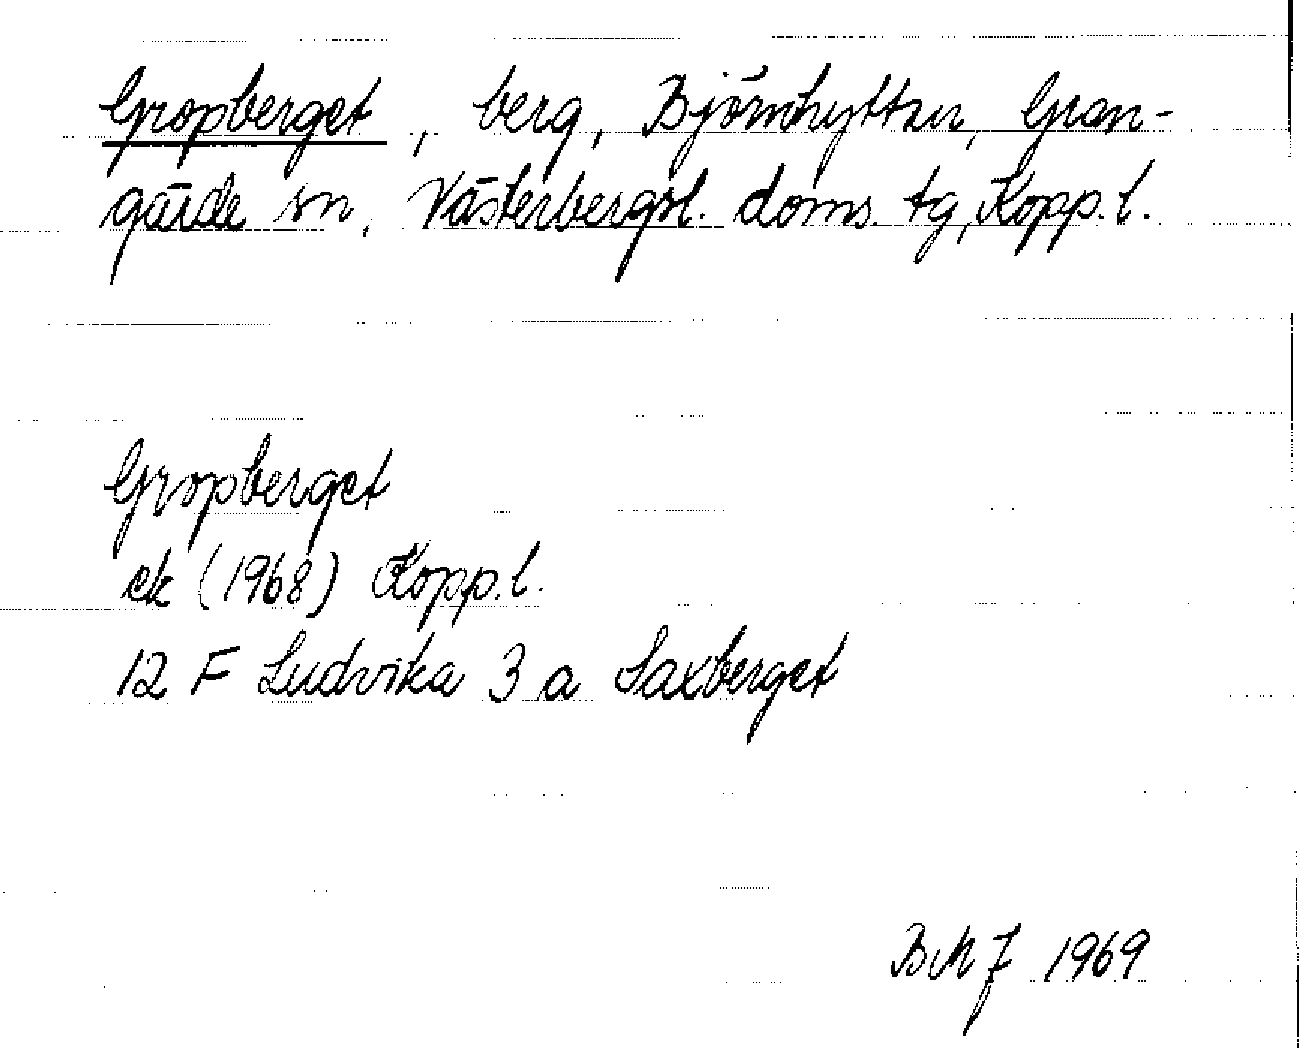 Gropberget, berg, Björnhyttan, Gran-
gärde sn, Västerbergsl. doms. tg, Kopp. l.
Gropberget
ek (1968) Kopp. l.
12 F Ludvika 3 a Saxberget
BMJ 1969